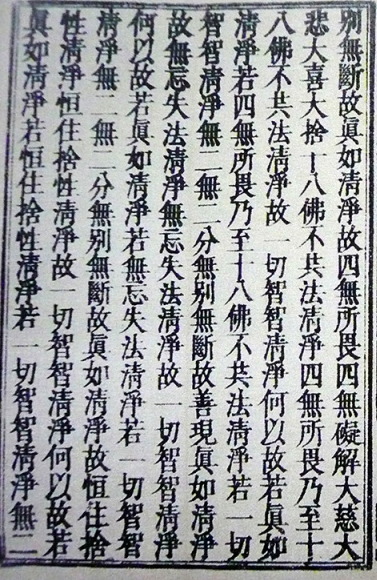 別無斷故眞如清淨故四無所畏四無礙解大慈大
悲大喜大捨十八佛不共法清淨四無所畏乃至十
八佛不共法清淨故一切智智清淨何以故若眞如
清淨若四無所畏乃至十八佛不共法清淨若一切
智智清淨無二無二分無別無斷故善現眞如清淨
故無忘失法清淨無忘失法清淨故一切智智清淨
何以故若眞如清淨若無忘失法清淨若一切智智
清淨無二無二分無別無斷故眞如清淨故恒住捨
性清淨恒住捨性清淨故一切智智清淨何以故若
眞如清淨若恒住捨性清淨若一切智智清淨無二